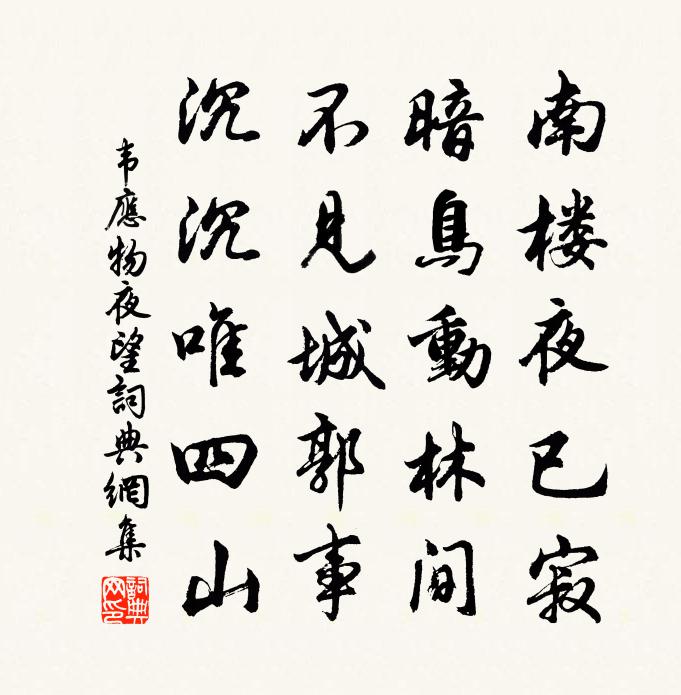 南楼夜已寂
暗鳥動林间
不見城郭事
沉沉唯四山
韦應物夜望詞典網集
詞典網印